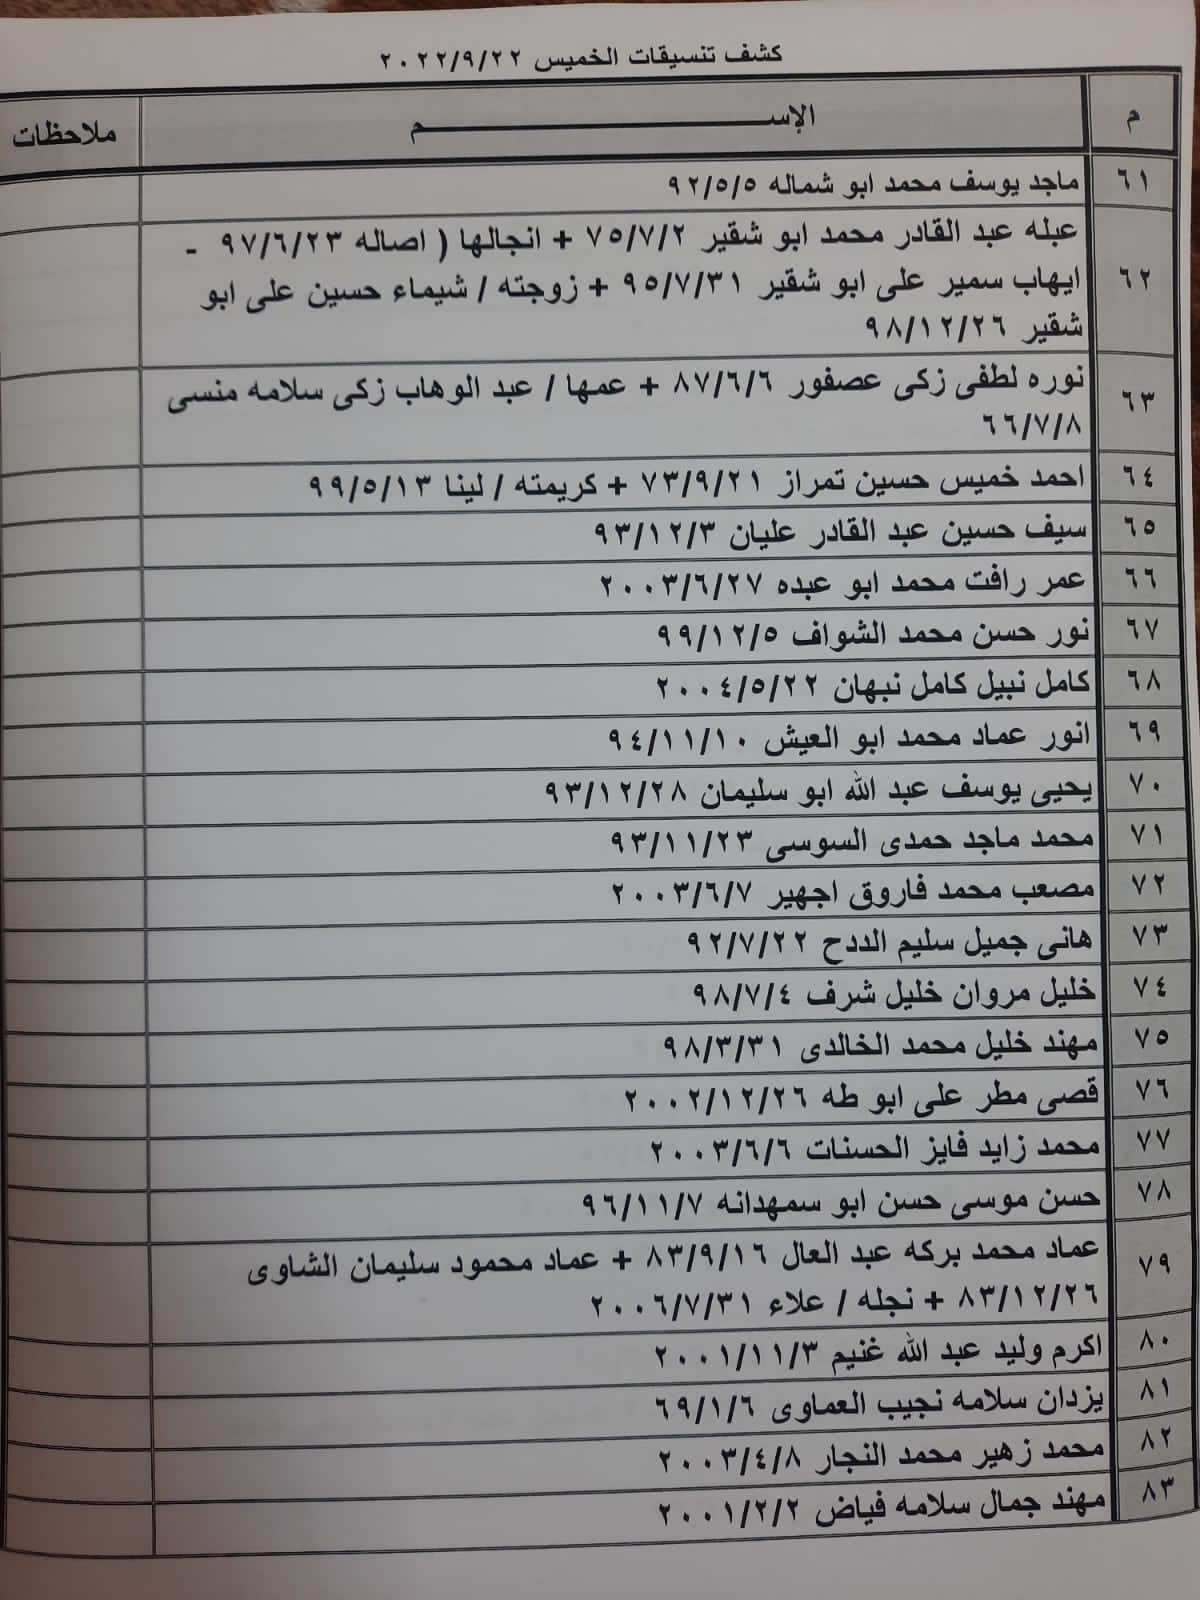 كشف تنسيقات الخميس ٢٠٢٢/٩/٢٢
م الإســـم ملاحظات
٦١ ماجد يوسف محمد ابو شماله ٩٢/٥/٥
٦٢ عبله عبد القادر محمد ابو شقير ٧٥/٧/٢ + انجالها ( اصاله ٩٧/٦/٢٣ -
ايهاب سمير على ابو شقير ٩٥/٧/٣١ + زوجته / شيماء حسين على ابو
شقير ٩٨/١٢/٢٦
٦٣ نوره لطفى زكى عصفور ٨٧/٦/٦ + عمها / عبد الوهاب زكى سلامه منسى
٦٦/٧/٨
٦٤ احمد خميس حسين تمراز ٧٣/٩/٢١ + كريمته / لينا ٩٩/٥/١٣
٦٥ سيف حسين عبد القادر عليان ٩٣/١٢/٣
٦٦ عمر رافت محمد ابو عبده ٢٠٠٣/٦/٢٧
٦٧ نور حسن محمد الشواف ٩٩/١٢/٥
٦٨ كامل نبيل كامل نبهان ٢٠٠٤/٥/٢٢
٦٩ انور عماد محمد ابو العيش ٩٤/١١/١٠
٧٠ يحيى يوسف عبد الله ابو سليمان ٩٣/١٢/٢٨
٧١ محمد ماجد حمدى السوسى ٩٣/١١/٢٣
٧٢ مصعب محمد فاروق اجهير ٢٠٠٣/٦/٧
٧٣ هانى جميل سليم الددح ٩٢/٧/٢٢
٧٤ خليل مروان خليل شرف ٩٨/٧/٤
٧٥ مهند خليل محمد الخالدى ٩٨/٣/٣١
٧٦ قصى مطر على ابو طه ٢٠٠٢/١٢/٢٦
٧٧ محمد زايد فايز الحسنات ٢٠٠٣/٦/٦
٧٨ حسن موسى حسن ابو سمهدانه ٩٦/١١/٧
٧٩ عماد محمد بركه عبد العال ٨٣/٩/١٦ + عماد محمود سليمان الشاوى
٨٣/١٢/٢٦ + نجله / علاء ٢٠٠٦/٧/٣١
٨٠ اكرم وليد عبد الله غنيم ٢٠٠١/١١/٣
٨١ يزدان سلامه نجيب العماوى ٦٩/١/٦
٨٢ محمد زهير محمد النجار ٢٠٠٣/٤/٨
٨٣ مهند جمال سلامه فياض ٢٠٠١/٢/٢